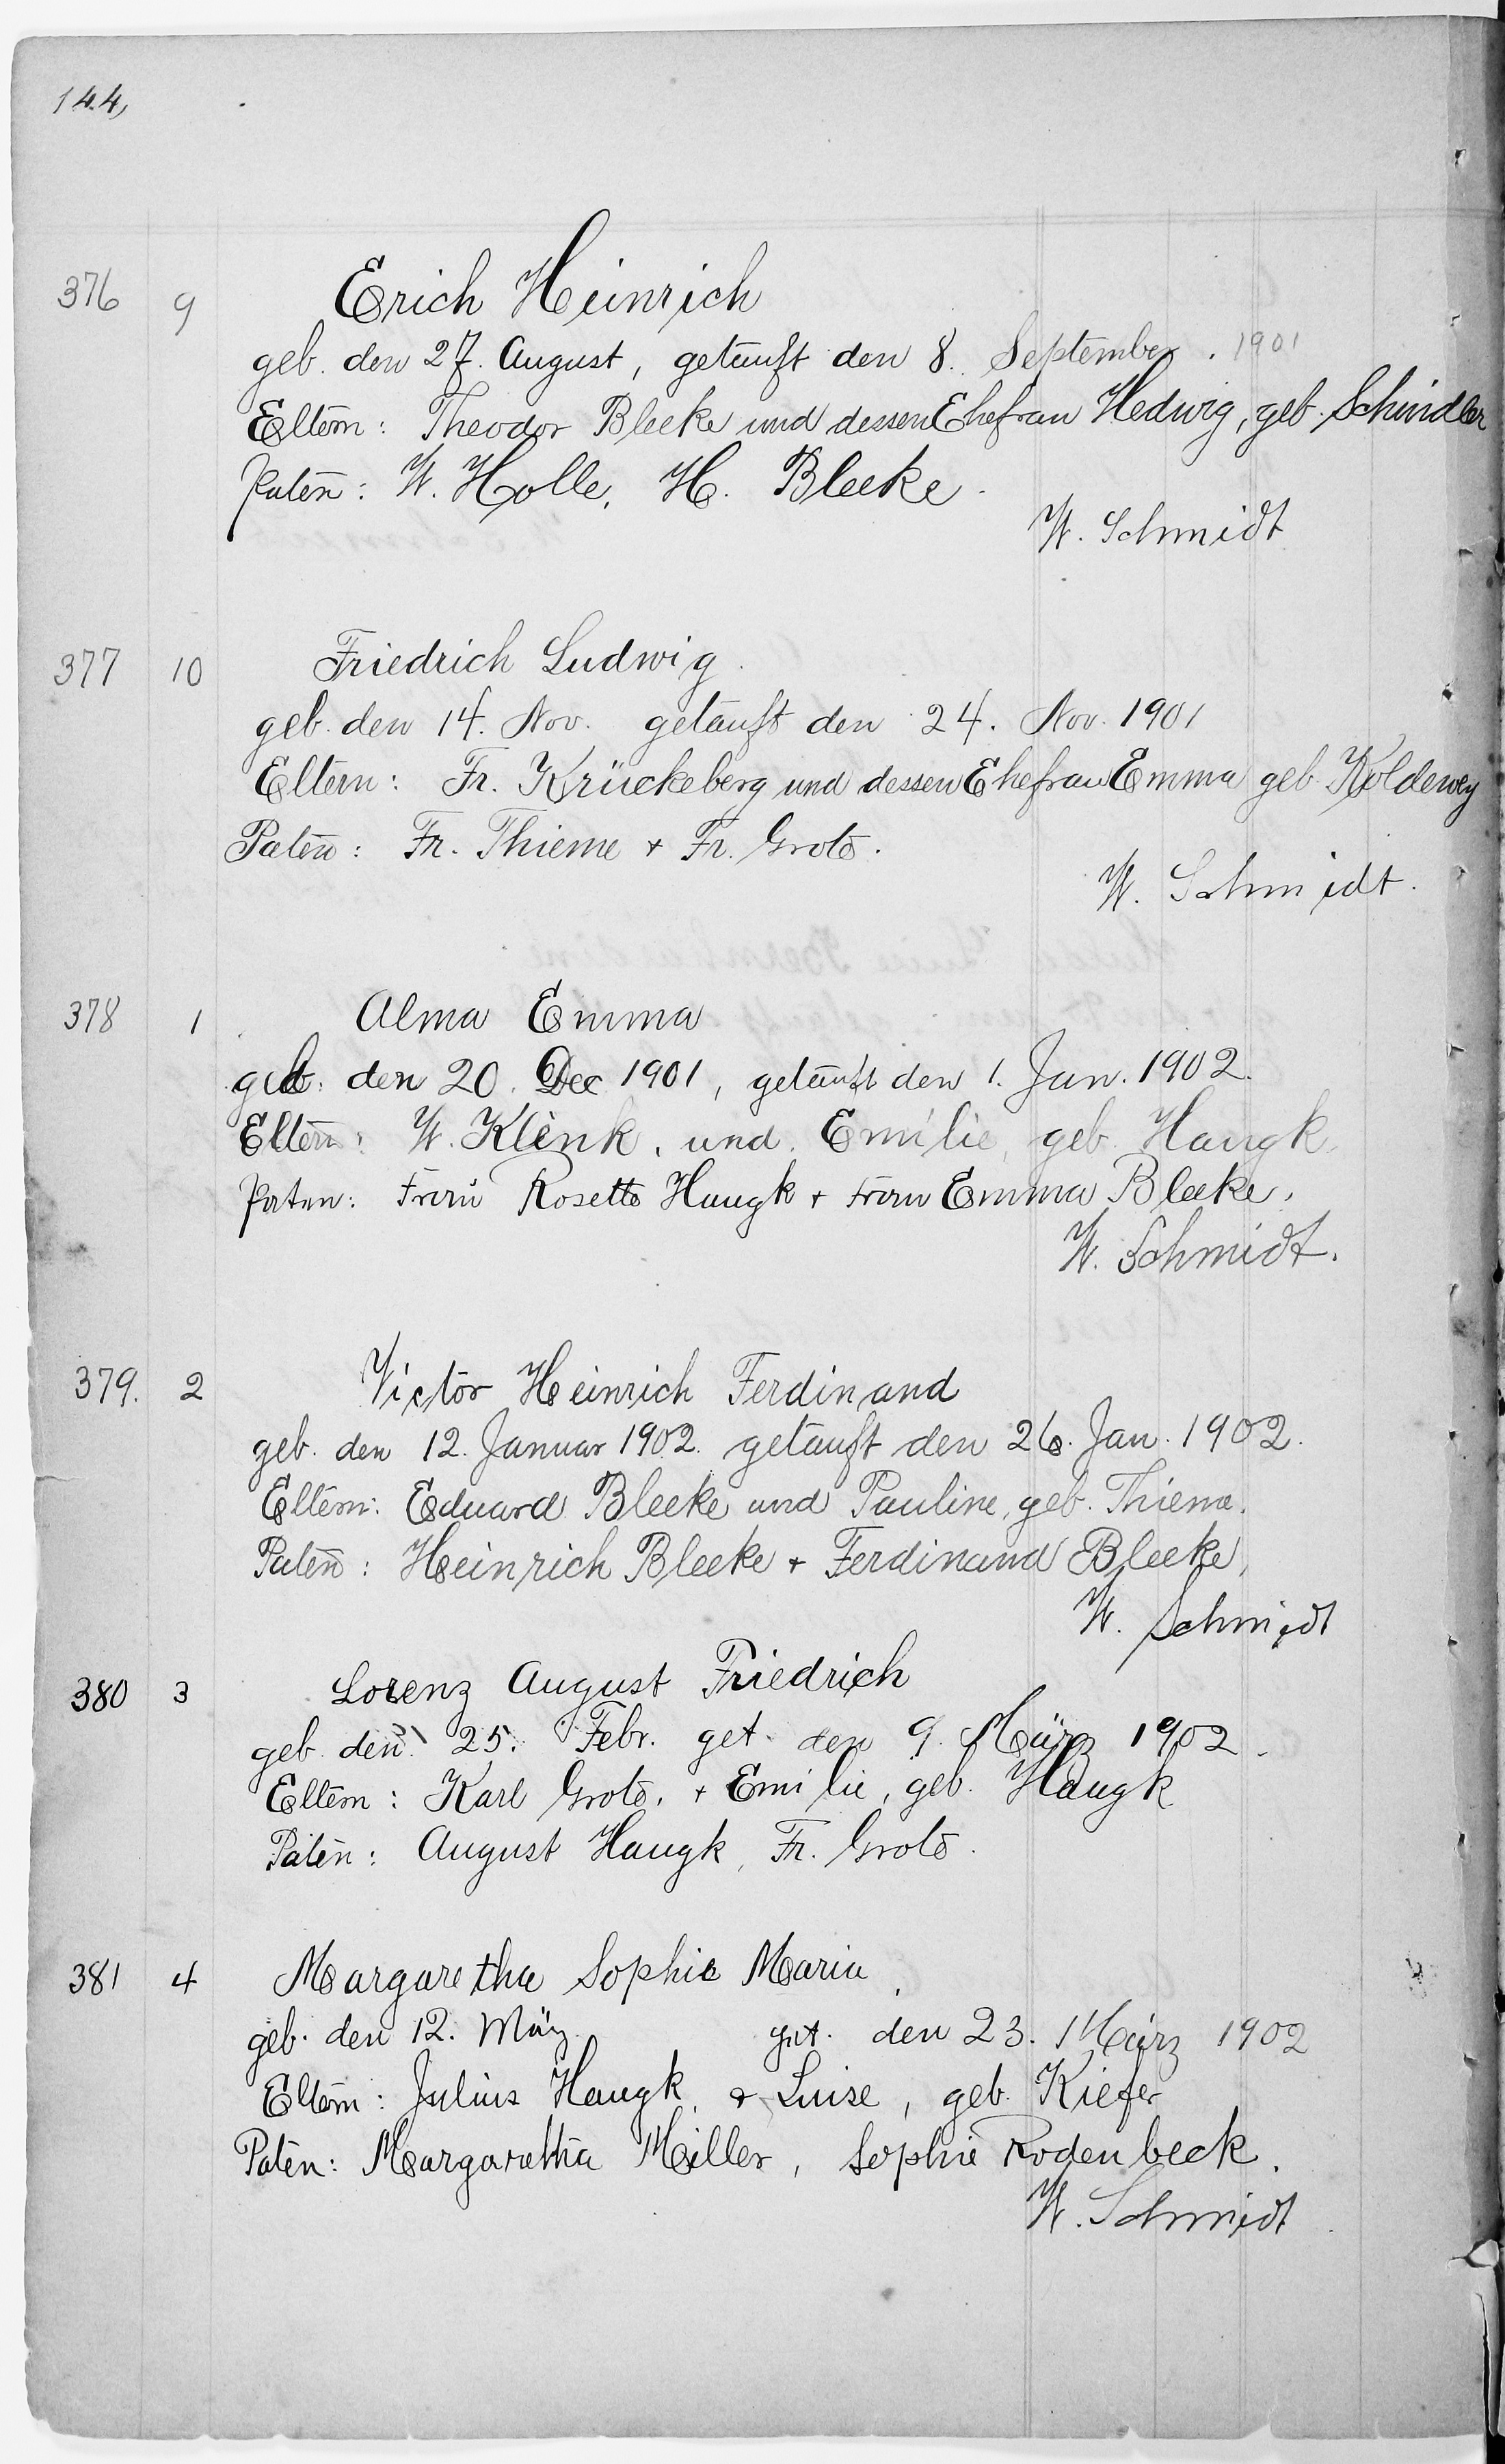 144,
376 9 Erich Heinrich
geb. den 27. August, getauft den 8. September. 1901
Eltern: Theodor Bleeke und dessen Ehefrau Hedwig, geb. Schindler
Paten: W. Holle, H. Bleeke.
W. Schmidt
377 10 Friedrich Ludwig.
geb. den 14. Nov. getauft den 24. Nov. 1901
Eltern: Fr. Krückeberg und dessen Ehefrau Emma geb. Koldewey
Paten: Fr. Thieme + Fr. Grote.
W. Schmidt.
378 1 Alma Emma
geb. den 20. Dec 1901, getauft den 1. Jan. 1902.
Eltern: W. Klenk, und Emilie, geb. Haugk,
Paten: Frau Rosette Haugk + Frau Emma Bleeke,
W. Schmidt.
379. 2 Victor Heinrich Ferdinand
geb. den 12. Januar 1902. getauft den 26. Jan. 1902.
Eltern: Eduard Bleeke und Pauline, geb. Thieme.
Paten: Heinrich Bleeke + Ferdinand Bleeke,
W. Schmidt
380 3 Lorenz August Friedrich
geb. den 25. Febr. get. den 9. März 1902.
Eltern: Karl Grote, + Emilie, geb. Haugk
Paten: August Haugk, Fr. Grote.
381 4 Margaretha Sophie Maria
geb. den 12. März get. den 23. März 1902
Eltern: Julius Haugk, + Luise, geb. Kiefer
Paten: Margaretha Miller, Sophie Rodenbeck.
W. Schmidt